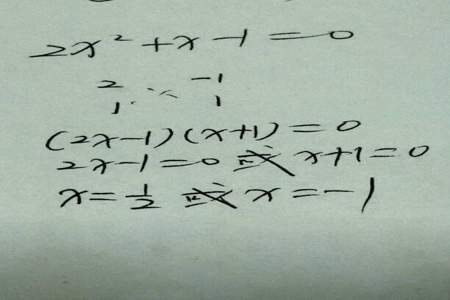 2x² + x - 1 = 0
2 -1
1 1
(2x-1)(x+1) = 0
2x-1=0 或 x+1=0
x=½ 或 x=-1